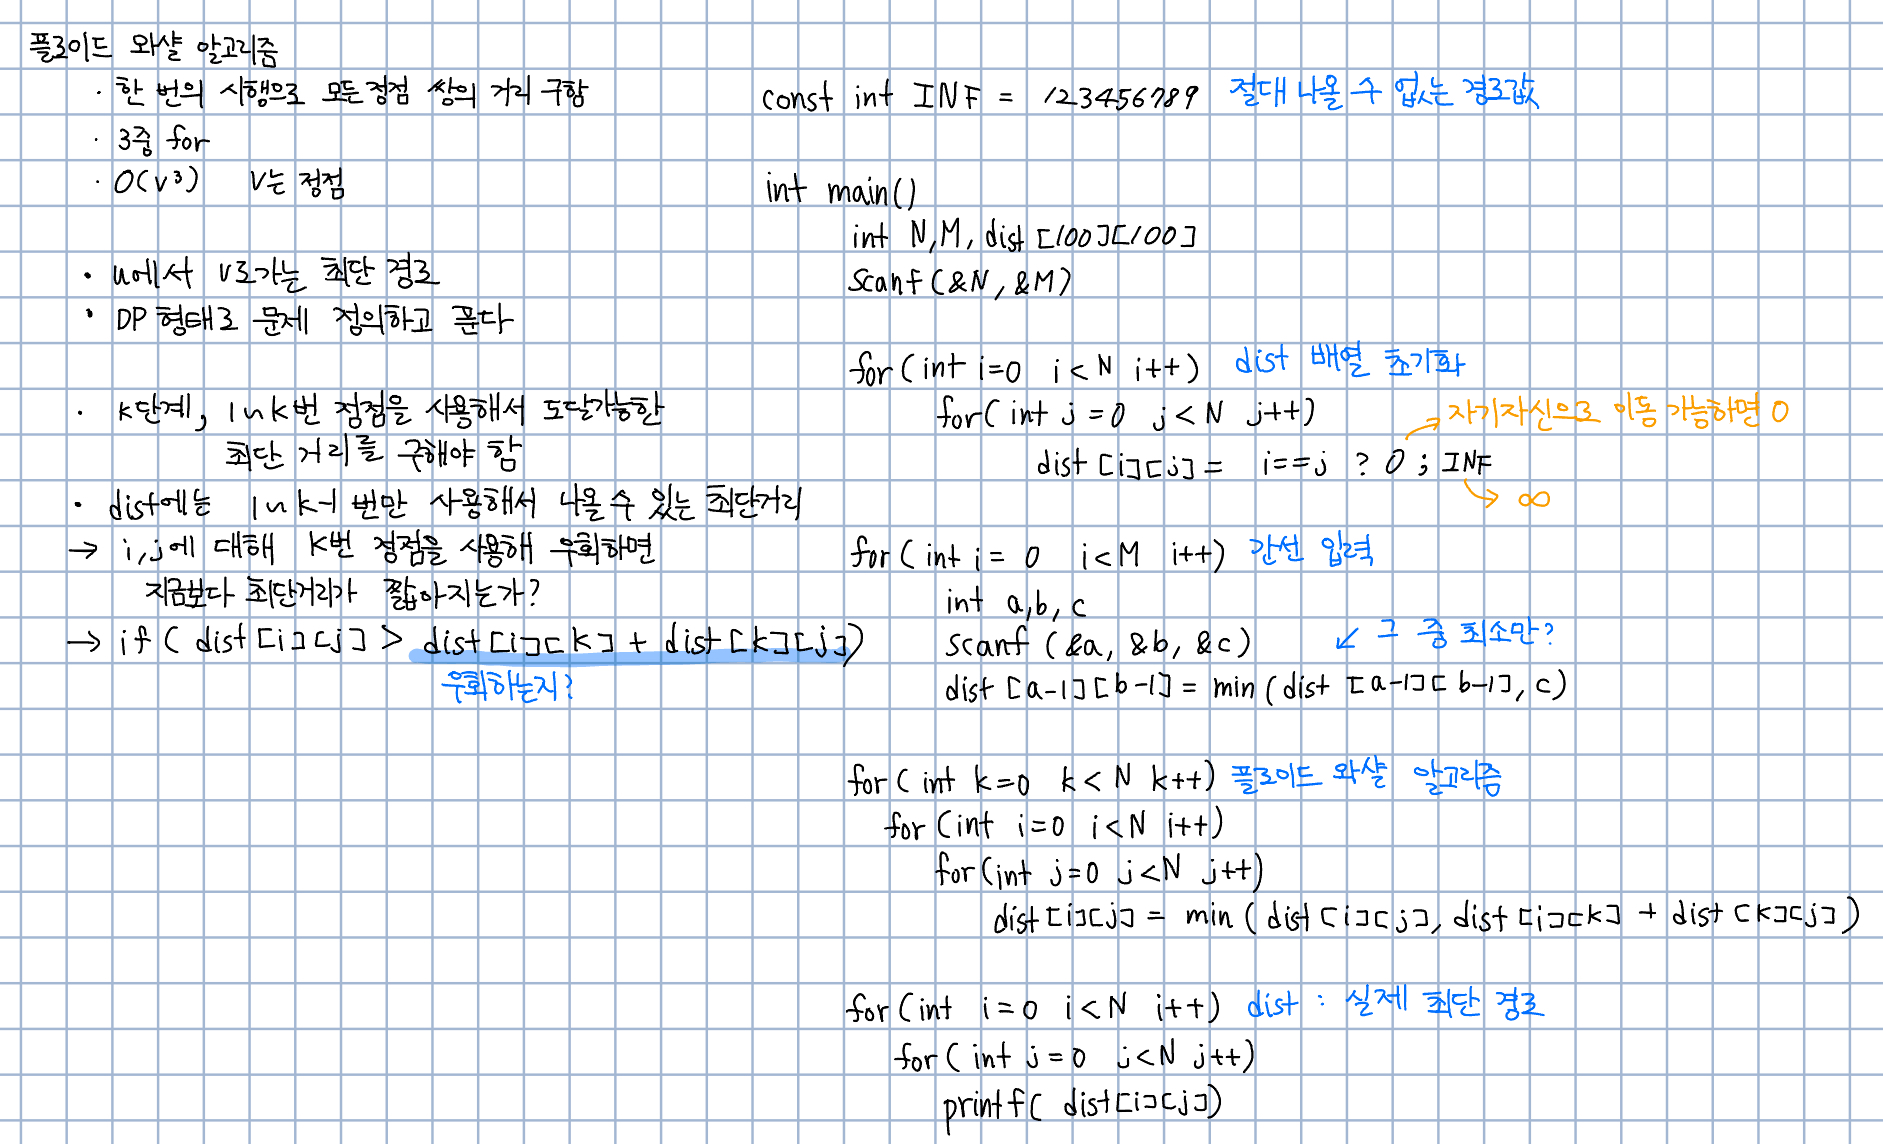 플로이드 와샬 알고리즘
· 한 번의 시행으로 모든 정점 쌍의 거리 구함
· 3중 for
· O(v³) V는 정점
· u에서 v로가는 최단 경로
· DP 형태로 문제 정의하고 푼다
· k단계, 1~k번 정점을 사용해서 도달가능한
최단 거리를 구해야 함
· dist에는 1~k-1 번만 사용해서 나올 수 있는 최단거리
→ i,j에 대해 k번 정점을 사용해 우회하면
지금보다 최단거리가 짧아지는가?
→ if ( dist[i][j] > dist[i][k] + dist[k][j])
우회하는지?
const int INF = 123456789 절대 나올 수 없는 경로값
int main()
int N,M, dist [100][100]
scanf (&N, &M)
for ( int i=0 i<N i++) dist 배열 초기화
for( int j=0 j<N j++) → 자기자신으로 이동 가능하면 0
dist [i][j] = i==j ? 0 ; INF
→ ∞
for ( int i= 0 i<M i++) 간선 입력
int a,b, c
scanf (&a, &b, &c) ↙ 그 중 최소만?
dist [a-1][b-1] = min (dist [a-1][b-1], c)
for ( int k=0 k<N k++) 플로이드 와샬 알고리즘
for (int i=0 i<N i++)
for (int j=0 j<N j++)
dist[i][j] = min ( dist[i][j], dist[i][k] + dist[k][j])
for (int i=0 i<N i++) dist : 실제 최단 경로
for ( int j=0 j<N j++)
printf( dist[i][j])